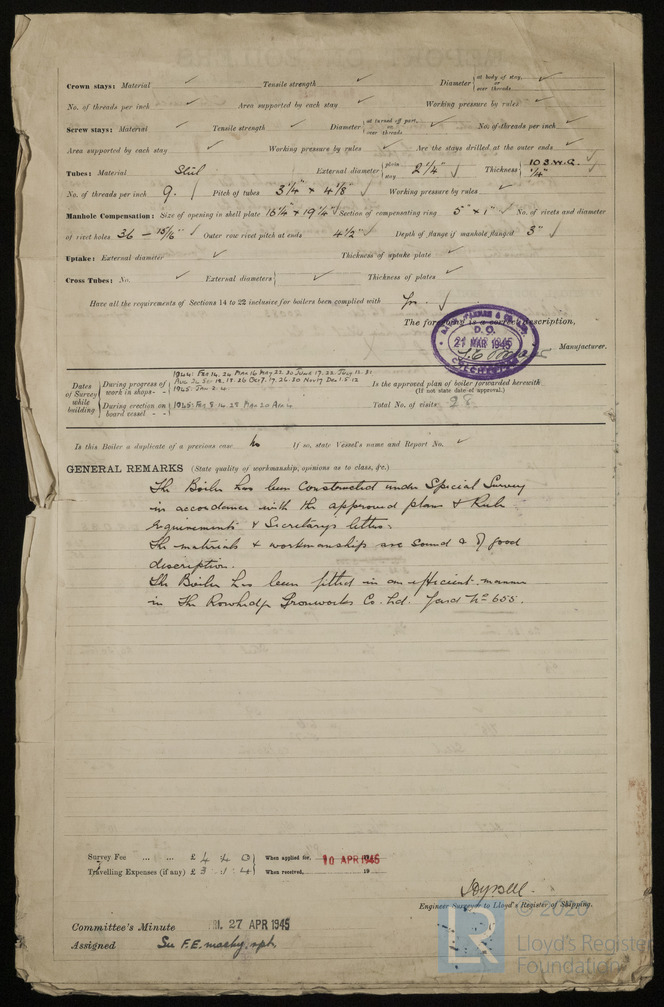 Crown stays: Material ✓ Tensile strength ✓ Diameter { at body of stay, or over threads ✓
No. of threads per inch ✓ Area supported by each stay ✓ Working pressure by rules ✓
Screw stays: Material ✓ Tensile strength ✓ Diameter { at turned off part, or over threads ✓ No. of threads per inch ✓
Area supported by each stay ✓ Working pressure by rules ✓ Are the stays drilled at the outer ends ✓
Tubes: Material Steel External diameter { plain stay 2¼" ✓ Thickness { 10 S.W.G. ¼" ✓
No. of threads per inch 9. Pitch of tubes 3¼" × 4⅛" ✓ Working pressure by rules ✓
Manhole Compensation: Size of opening in shell plate 15¼" × 19¼" ✓ Section of compensating ring 5" × 1" ✓ No. of rivets and diameter
of rivet holes 36 — 15/16" ✓ Outer row rivet pitch at ends 4½" ✓ Depth of flange if manhole flanged 3" ✓
Uptake: External diameter ✓ Thickness of uptake plate ✓
Cross Tubes: No. ✓ External diameters { ✓ Thickness of plates ✓
Have all the requirements of Sections 14 to 22 inclusive for boilers been complied with Yes. ✓
The foregoing is a correct description,
D.O.
21 MAR 1945
COLCHESTER
Manufacturer.
Dates of Survey while building
During progress of work in shops - -
1944: Feb 14. 24 Mar 16 May 22. 30 June 17. 22. July 12. 31
1945: Jan 2. 4
During erection on board vessel - - -
1945: Feb 8. 14. 28 Mar 20 Apr 4
Is the approved plan of boiler forwarded herewith
(If not state date of approval.)
Total No. of visits 28
Is this Boiler a duplicate of a previous case No If so, state Vessel's name and Report No. ✓
GENERAL REMARKS (State quality of workmanship, opinions as to class, &c.)
The Boiler has been constructed under Special Survey
in accordance with the approved plans & Rule
requirements & Secretarys letters.
The materials & workmanship are sound & of good
description.
The Boiler has been fitted in an efficient manner
in The Rowhedge Ironworks Co. Ltd. Yard No 655.
Survey Fee ... ... £ 4 : 4 : 0 When applied for, 10 APR 1945
Travelling Expenses (if any) £ 3 : 1 : 4 When received, 19
Engineer Surveyor to Lloyd's Register of Shipping.
Committee's Minute FRI. 27 APR 1945
Assigned See F.E. machy. rpt.
LR
© 2020
Lloyd's Register
Foundation